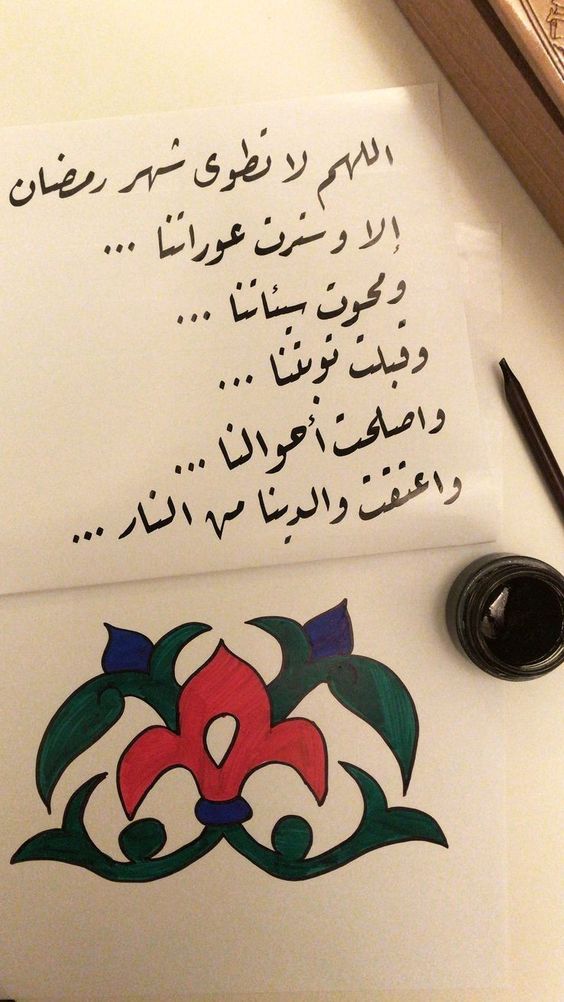 اللهم لا تطوى شهر رمضان
إلا وسترت عوراتنا ...
ومحوت سيئاتنا ...
وقبلت توبتنا ...
واصلحت أحوالنا ...
واعتقت والدينا من النار ...